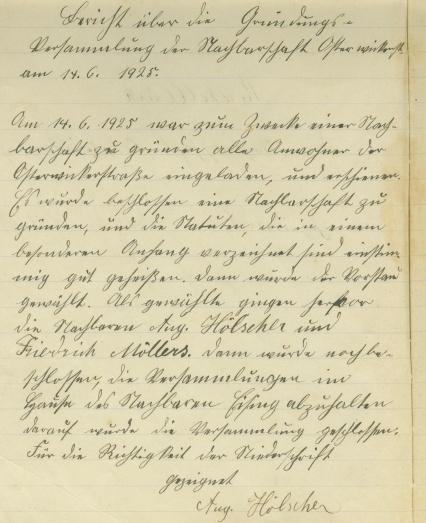 Bericht über die Gründungs-
Versammlung der Nachbarschaft Osterwickerst.
am 14. 6. 1925.
Am 14. 6. 1925 war zum Zwecke einer Nach-
barschaft zu gründen alle Anwohner der
Osterwickerstraße eingeladen, und erschienen.
Es wurde beschlossen eine Nachbarschaft zu
gründen, und die Statuten, die in einem
besonderen Anhang verzeichnet sind einstim-
mig gut geheißen. Dann wurde der Vorstan
gewählt. Als gewählte gingen hervor
die Nachbaren Aug. Hölscher und
Friedrich Möllers. Dann wurde noch be-
schlossen, die Versammlungen im
Hause des Nachbaren Eising abzuhalten
darauf wurde die Versammlung geschlossen.
Für die Richtigkeit der Niederschrift
gezeignet
Aug. Hölscher